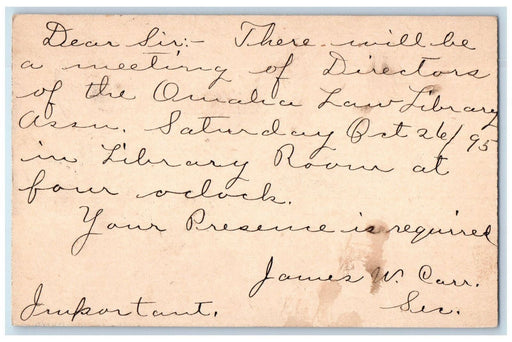 Dear Sir;- There will be
a meeting of Directors
of the Omaha Law Library
Assn. Saturday Oct 26/95
in Library Room at
four oclock.
Your Presense is required
James W. Carr.
Important. Sec.